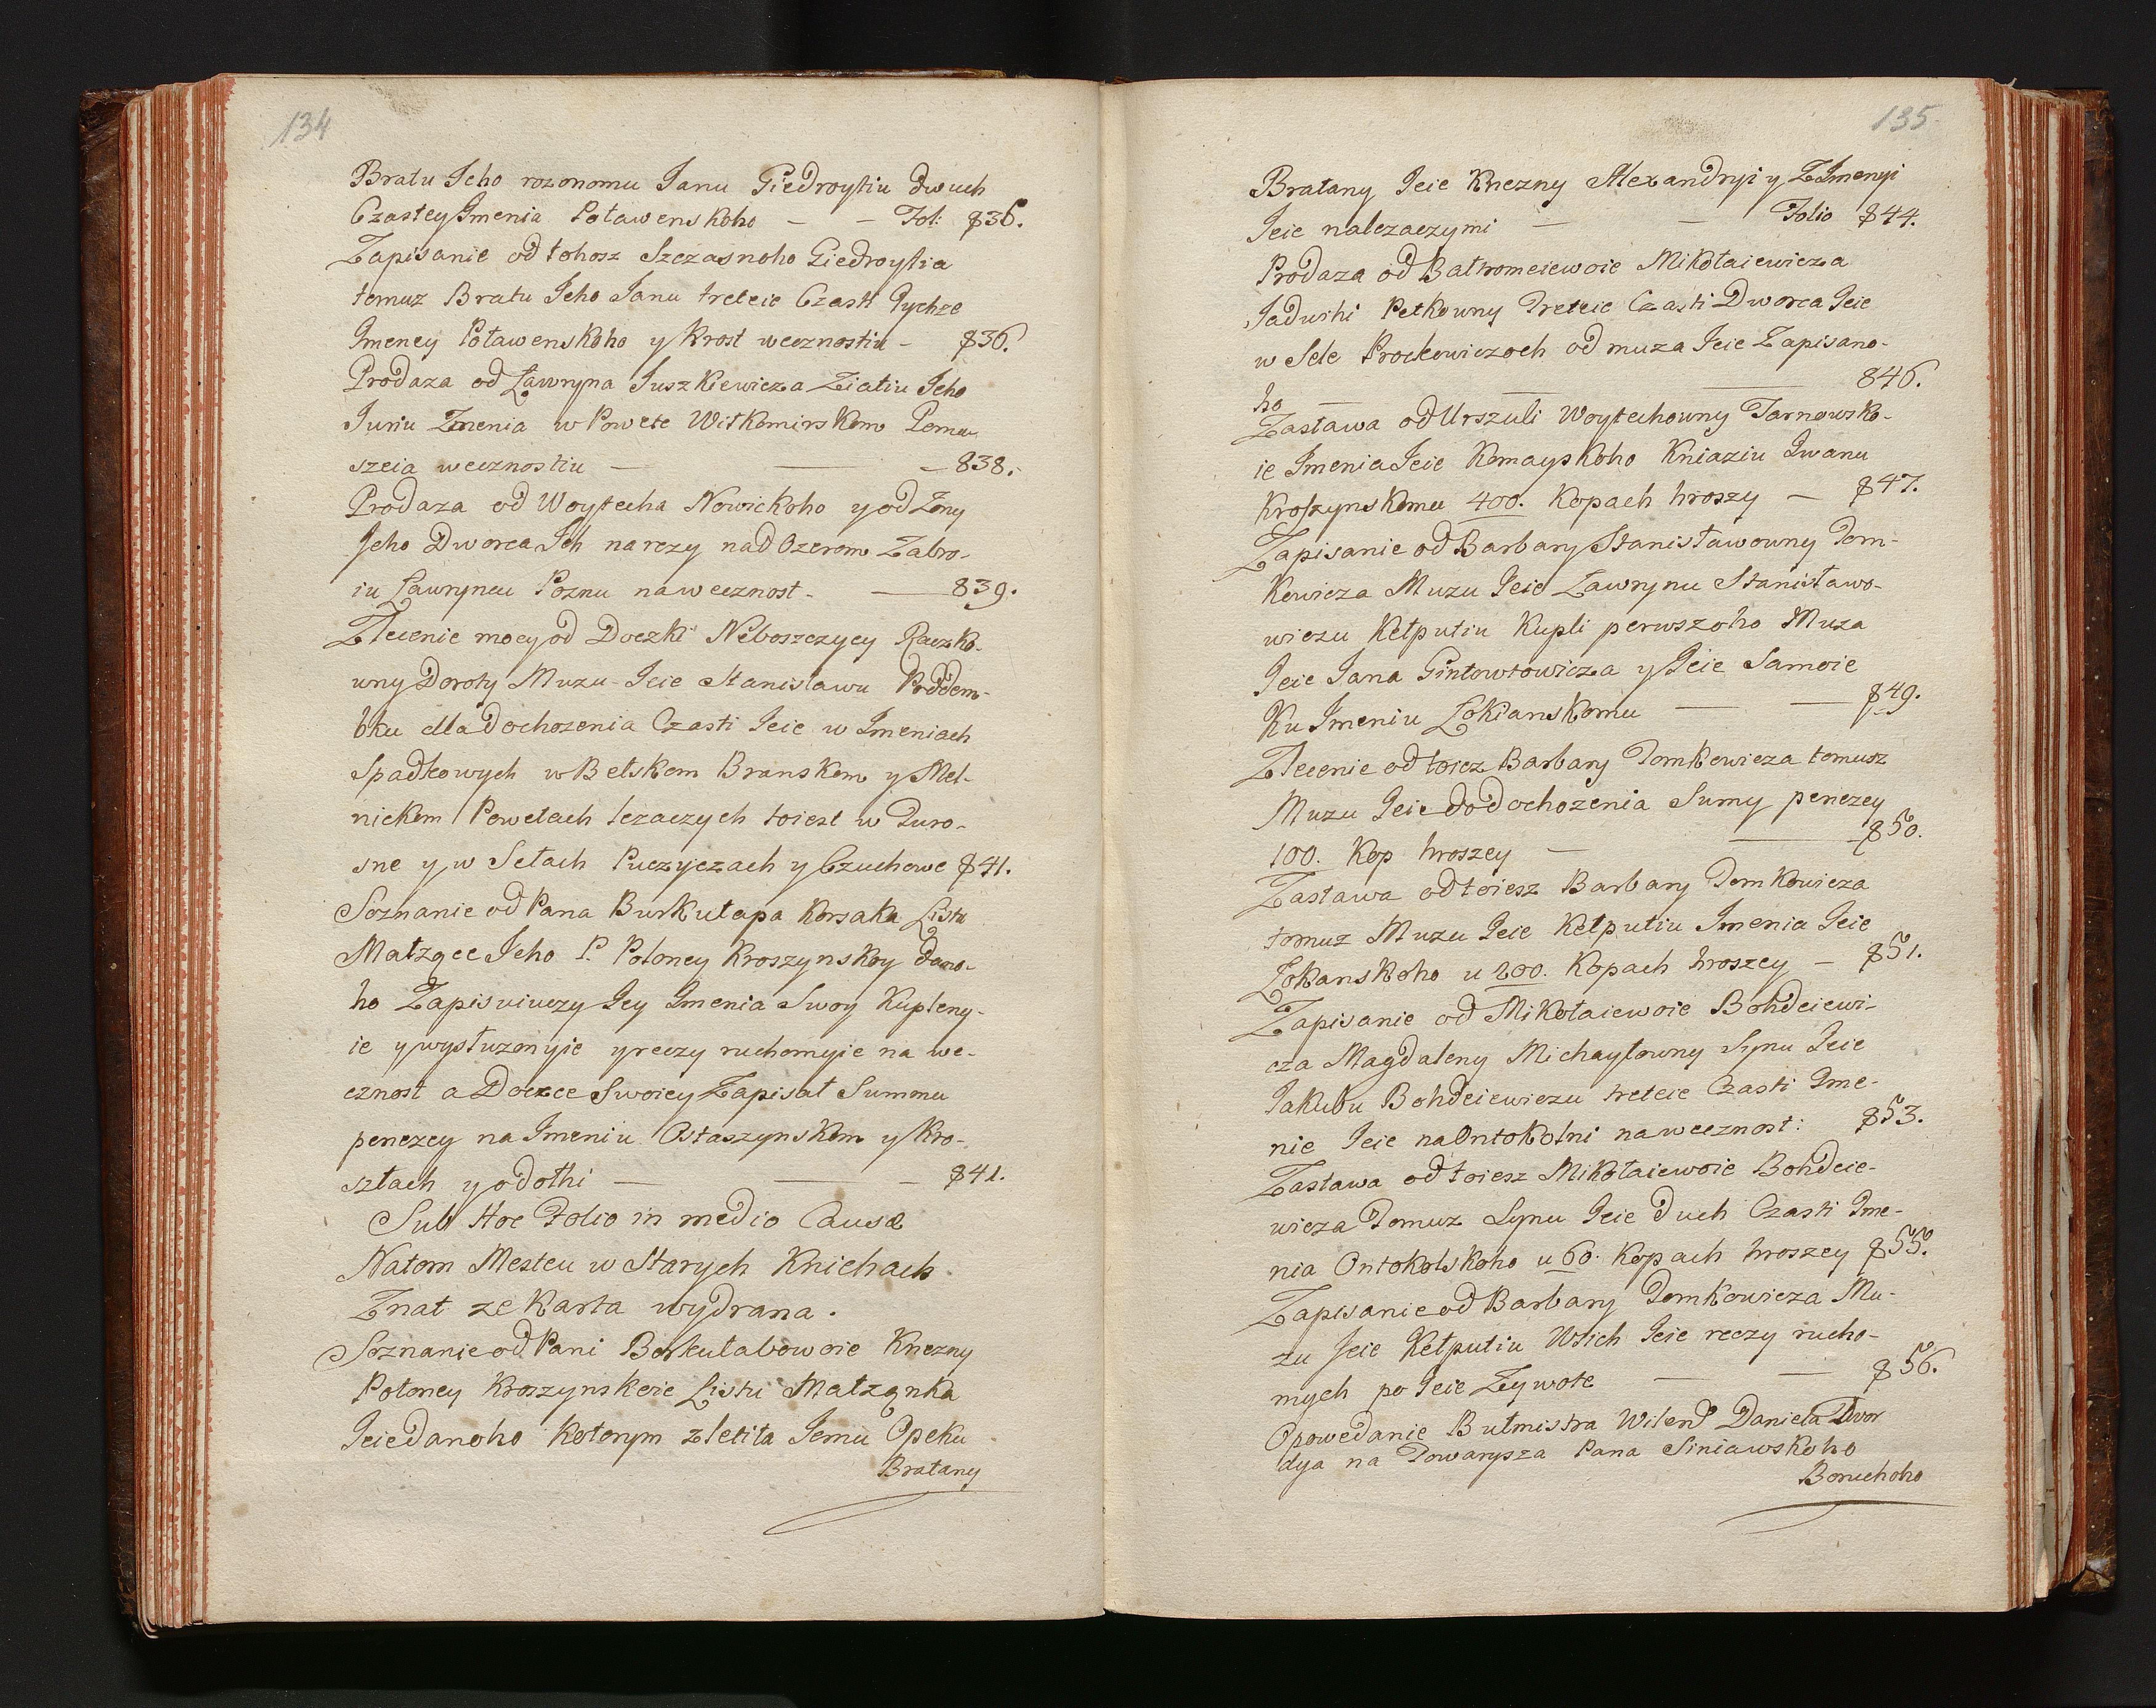 134
Bratu Jeho rozonomu Janu Giedroytiu dwuch
Czastey Jmenia Połowenskoho — — Fol: 836.
Zapisanie od tohosz Szczasnoho Giedroytia
temuz Bratu Jeho Janu treteie Czasti Tychze
Jmeney Poławenskoho y Krost wecznostiu – 836.
Prodaza od Ławryna Juszkiewicza Ziatiu Jeho
Juriu Jmenia w Powete Wiłkomirskom Pomu-
szcia wecznostiu — — — 838.
Prodaza od Woytecha Nowickoho y od Zony
Jeho Dworca Jch na rczy nad Ozerom Zabro-
iu Ławryncu Poznu na wecznost. — 839.
Zlecenie mocy od Doczki Neboszczycy Raczko-
wny Doroty Muzu Jeie Stanisławu Poddem-
bku dla dochozenia Czasti Jeie w Jmeniach
Spadkowych w Belskom Branskom y Mel-
nickom Powetach lezaczych toiest w Turo-
sne y w Sełach Puczyczach y Czuchowe 841.
Soznanie od Pana Burkułapa Korsaka Listu
Małzqce Jeho P. Połoney Kroszynskoy dano-
ho Zapisuiuczy Jey Jmenia Swoy Kupleny-
ie y wysłuzonyie y reczy ruchomyie na we-
cznost a Doczce Swoiey Zapisał Summu
penezey na Jmeniu Ostaszynskom y Kro-
sztach y odothi — — — 841.
Sub Hoc Folio in medio Causæ
Natom Mestcu w Starych Knichach
Znat ze Karta wydrana.
Soznanie od Pani Borkulabowoie Knezny
Połoney Kroszynskoie Listu Małzqnka
Jeie danoho Kotorym zleciła Jemu Opeku
Bratany
135
Bratany Jeie Knezny Alexandryi y Z Jmenyi
Jeie nalezaczymi — — Folio 844.
Prodaza od Bałtromeiewoie Mikołaiewicza
Jaduhi Petkowny Treteie Czasti Dworca Jeie
w Sele Prockowiczoch od muza Jeie Zapisano-
ho — — — 846.
Zastawa od Urszuli Woytechowny Tarnowsko-
ie Jmenia Jeie Komayskoho Kniaziu Jwanu
Kroszynskomu 400. Kopach hroszy — 847.
Zapisanie od Barbary Stanisławowny Tom-
kowicza Muzu Jeie Ławrynu Stanisławo-
wiczu Kełputiu Kupli perwszoho Muza
Jeie Jana Gintowtowicza y Jeie Samoie
Ku Jmeniu Łokianskomu — — 849.
Zlecenie od toiez Barbary Tomkowicza tomusz
Muzu Jeie do dochozenia Sumy penezey
100. Kop hroszey — — 850.
Zastawa od toiesz Barbary Tomkowicza
tomuz Muzu Jeie Kełputiu Jmenia Jeie
Łokanskoho u 200. Kopach hroszey — 851.
Zapisanie od Mikołaiewoie Bohdeiewi-
cza Magdaleny Michayłowny Synu Jeie
Jakubu Bohdeiewiczu treteie Czasti Jme-
nie Jeie na Ontokolni na wecznost: 853.
Zastawa od toiesz Mikołaiewoie Bohdeie-
wicza Tomuz Synu Jeie Duch Czasti Jme-
nia Ontokolskoho u 60. Kopach hroszey 855.
Zapisanie od Barbary Tomkowicza Mu-
zu Jeie Kełputiu Wsich Jeie reczy rucho-
mych po Jeie Zywote — — 856.
Opowedanie Butmistra Wilens Danieła Dwor
dya na Towarysza Pana Siniawskoho
Boruchoho